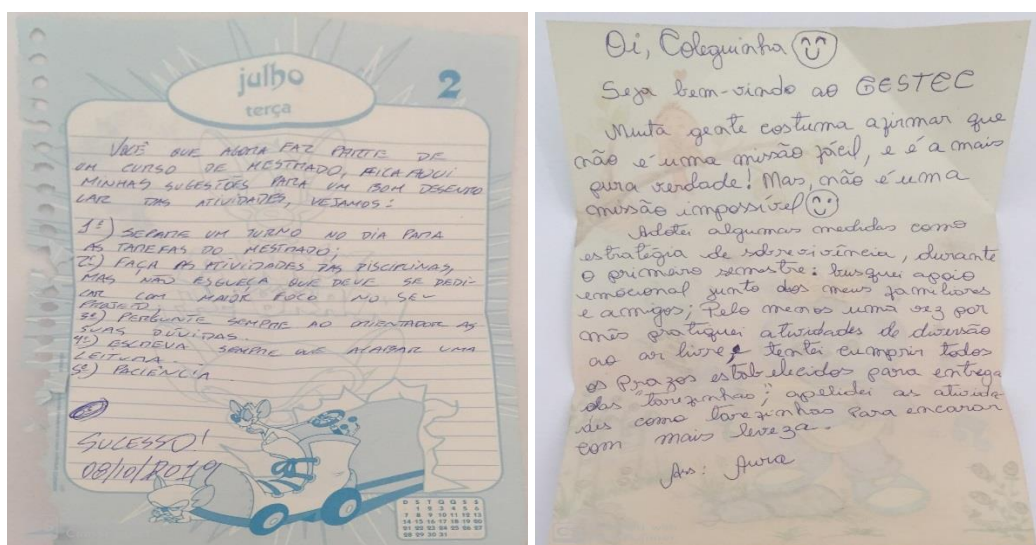 julho
terça
2
VOCÊ QUE AGORA FAZ PARTE DE
UM CURSO DE MESTRADO, FICA AQUI
MINHAS SUGESTÕES PARA UM BOM DESENVO
LAR DAS ATIVIDADES, VEJAMOS:
1º) SEPARE UM TURNO NO DIA PARA
AS TAREFAS DO MESTRADO;
2º) FAÇA AS ATIVIDADES DAS DISCIPLINAS,
MAS NÃO ESQUEÇA QUE DEVE SE DEDI-
CAR COM MAIOR FOCO NO SEU
PROJETO.
3º) PERGUNTE SEMPRE AO ORIENTADOR AS
SUAS DÚVIDAS.
4º) ESCREVA SEMPRE QUE ACABAR UMA
LEITURA.
5º) PACIÊNCIA.
SUCESSO!
08/10/2019
D S T Q Q S S
1 2 3 4 5 6
7 8 9 10 11 12 13
14 15 16 17 18 19 20
21 22 23 24 25 26 27
28 29 30 31
Oi, Coleguinha
Seja bem-vindo ao GESTEC
Muita gente costuma afirmar que
não é uma missão fácil, e é a mais
pura verdade! Mas, não é uma
missão impossível
Adotei algumas medidas como
estratégia de sobrevivência, durante
o primeiro semestre: busquei apoio
emocional junto dos meus familiares
e amigos; Pelo menos uma vez por
mês pratiquei atividades de diversão
ao ar livre, e tentei cumprir todos
os Prazos estabelecidos para entrega
das "tarezinhas"; apelidei as ativida
des como tarezinhas Para encarar
com mais leveza.
Ass: Aura